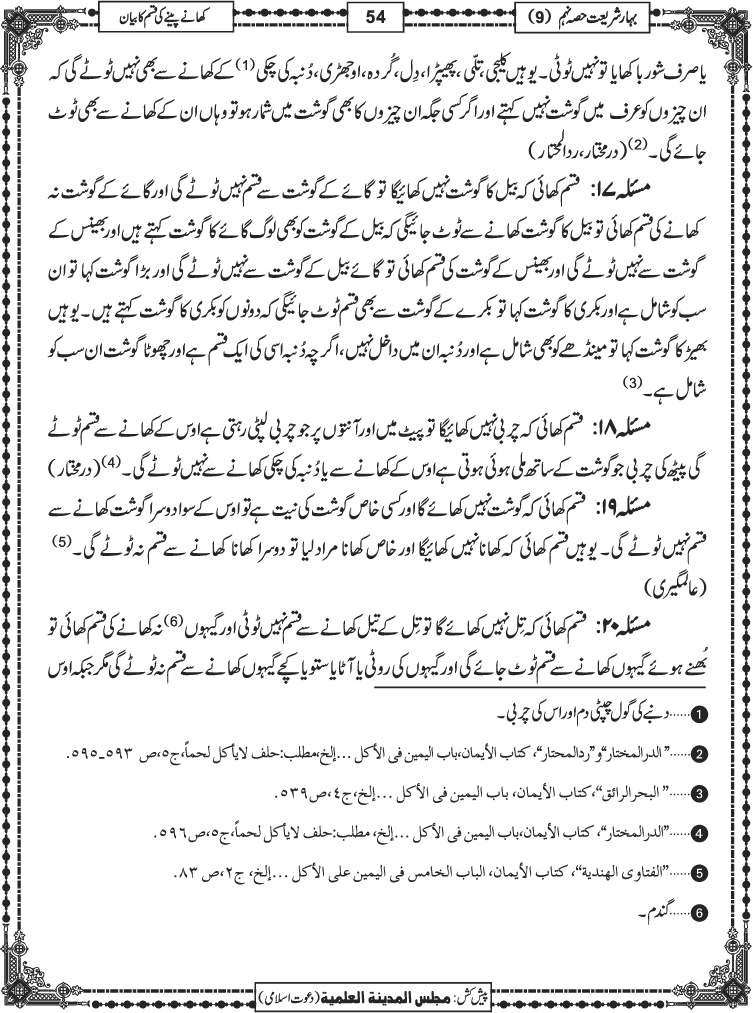 بہار شریعت حصہ نہم (9)
54
کھانے پینے کی قسم کا بیان
یا صرف شوربا کھایا تو نہیں ٹوٹی۔ یوہیں کلیجی، تِلّی، پھیپڑا، دِل، گُردہ، اوجھڑی، دُنبہ کی چکی (1) کے کھانے سے بھی نہیں ٹوٹے گی کہ
ان چیزوں کو عرف میں گوشت نہیں کہتے اور اگر کسی جگہ ان چیزوں کا بھی گوشت میں شمار ہو تو وہاں ان کے کھانے سے بھی ٹوٹ
جائے گی۔ (2) (درمختار، ردالمحتار)
مسئلہ ۱۷: قسم کھائی کہ بیل کا گوشت نہیں کھائیگا تو گائے کے گوشت سے قسم نہیں ٹوٹے گی اور گائے کے گوشت نہ
کھانے کی قسم کھائی تو بیل کا گوشت کھانے سے ٹوٹ جائیگی کہ بیل کے گوشت کو بھی لوگ گائے کا گوشت کہتے ہیں اور بھینس کے
گوشت سے نہیں ٹوٹے گی اور بھینس کے گوشت کی قسم کھائی تو گائے بیل کے گوشت سے نہیں ٹوٹے گی اور بڑا گوشت کہا تو ان
سب کو شامل ہے اور بکری کا گوشت کہا تو بکرے کے گوشت سے بھی قسم ٹوٹ جائیگی کہ دونوں کو بکری کا گوشت کہتے ہیں۔ یوہیں
بھیڑ کا گوشت کہا تو مینڈھے کو بھی شامل ہے اور دُنبہ ان میں داخل نہیں، اگرچہ دُنبہ اسی کی ایک قسم ہے اور چھوٹا گوشت ان سب کو
شامل ہے۔ (3)
مسئلہ ۱۸: قسم کھائی کہ چربی نہیں کھائیگا تو پیٹ میں اور آنتوں پر جو چربی لپٹی رہتی ہے اوس کے کھانے سے قسم ٹوٹے
گی پیٹھ کی چربی جو گوشت کے ساتھ ملی ہوئی ہوتی ہے اوس کے کھانے سے یا دُنبہ کی چکی کھانے سے نہیں ٹوٹے گی۔ (4) (درمختار)
مسئلہ ۱۹: قسم کھائی کہ گوشت نہیں کھائے گا اور کسی خاص گوشت کی نیت ہے تو اوس کے سوا دوسرا گوشت کھانے سے
قسم نہیں ٹوٹے گی۔ یوہیں قسم کھائی کہ کھانا نہیں کھائیگا اور خاص کھانا مراد لیا تو دوسرا کھانا کھانے سے قسم نہ ٹوٹے گی۔ (5)
(عالمگیری)
مسئلہ ۲۰: قسم کھائی کہ تِل نہیں کھائے گا تو تِل کے تیل کھانے سے قسم نہیں ٹوٹی اور گیہوں (6) نہ کھانے کی قسم کھائی تو
بُھنے ہوئے گیہوں کھانے سے قسم ٹوٹ جائے گی اور گیہوں کی روٹی یا آٹا یا ستو یا کچے گیہوں کھانے سے قسم نہ ٹوٹے گی مگر جبکہ اوس
1 ......دنبے کی گول چپٹی دم اور اس کی چربی۔
2 ......"الدرالمختار"و"ردالمحتار"، کتاب الأیمان،باب الیمین فی الأکل ...إلخ،مطلب:حلف لایأکل لحماً،ج۵،ص ۵۹۳۔۵۹۵.
3 ......"البحرالرائق"،کتاب الأیمان، باب الیمین فی الأکل ...إلخ،ج٤،ص٥٣٩.
4 ......"الدرالمختار"، کتاب الأیمان،باب الیمین فی الأکل ...إلخ، مطلب:حلف لایأکل لحماً،ج۵،ص۵۹۶.
5 ......"الفتاوی الھندیة"، کتاب الأیمان، الباب الخامس فی الیمین علی الأکل ...إلخ، ج۲،ص ۸۳.
6 ......گندم۔
پیش کش: مجلس المدینة العلمیة (دعوت اسلامی)